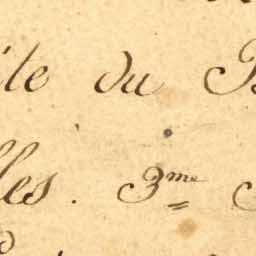 ile du B
lles. 3me